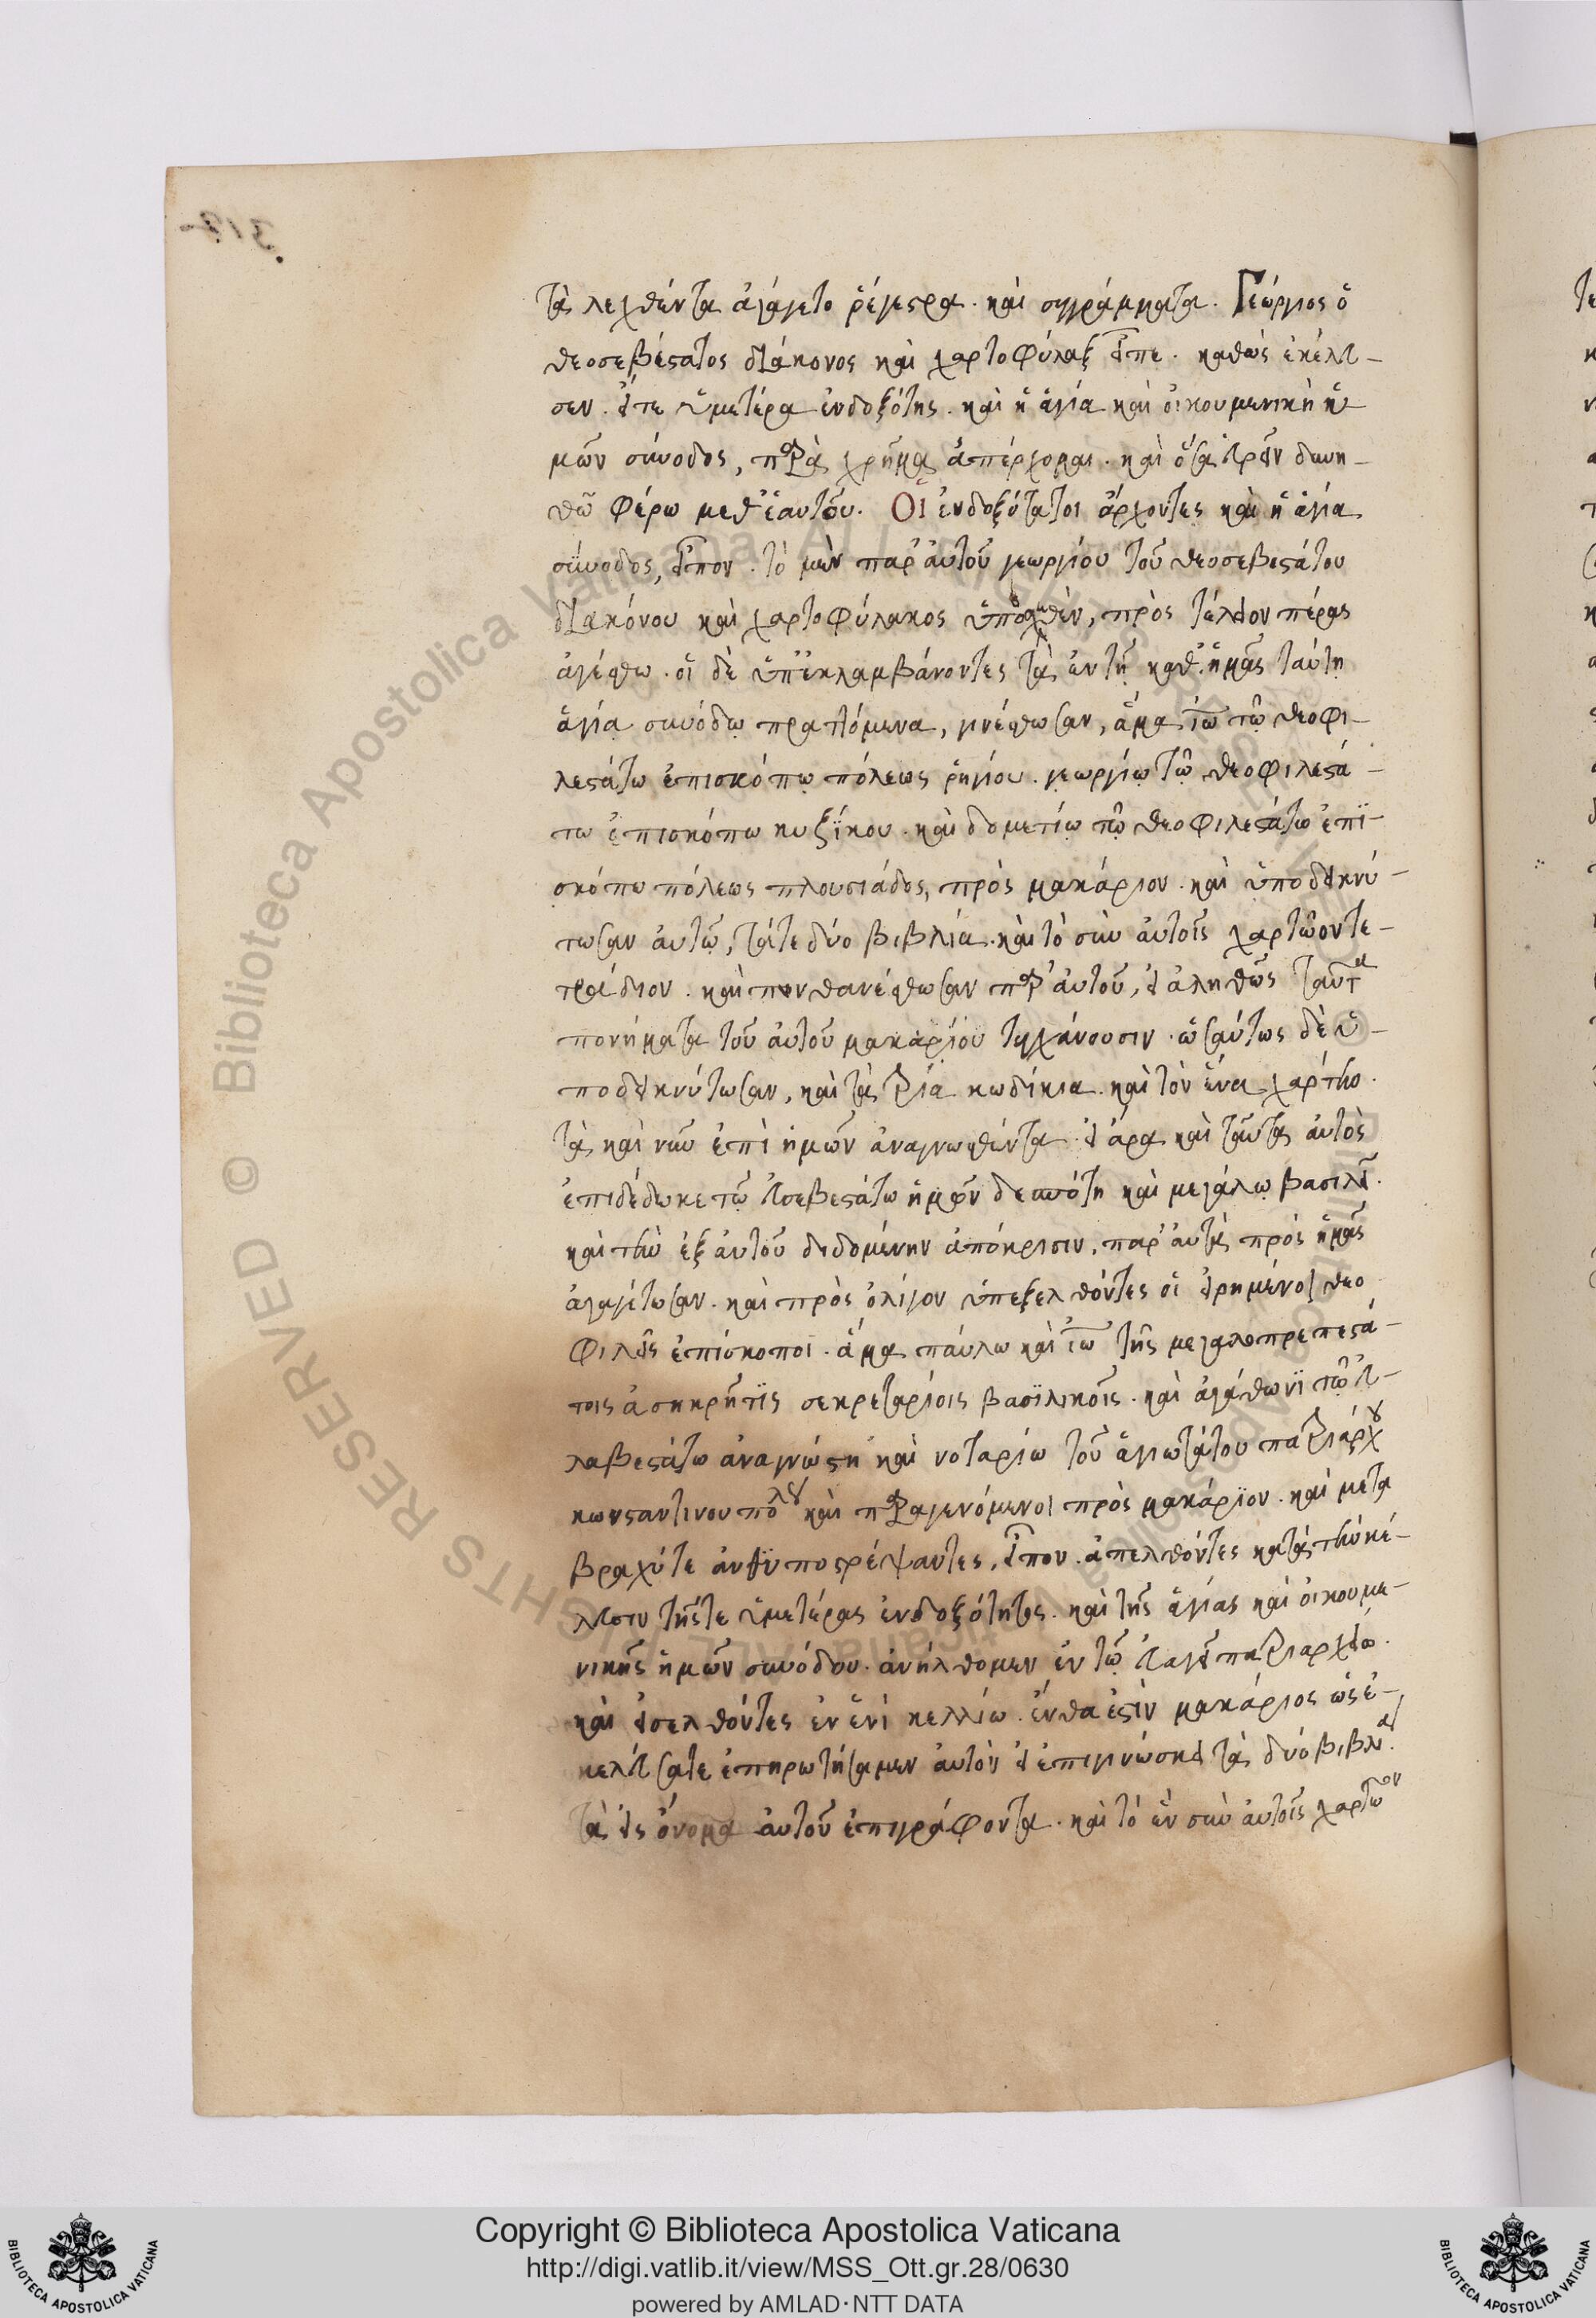 τὰ λεχθέντα ἀγάγετο ῥέγεστρα. καὶ συγγράμματα. Γεώργιος ὁ
θεοσεβέστατος διάκονος καὶ χαρτοφύλαξ εἶπε. καθὼς ἐκέλευ-
σεν. εἴτε ὑμετέρα ἐνδοξότης. καὶ ἡ ἁγία καὶ οἰκουμενικὴ ἡ
μῶν σύνοδος, παρὰ χρῆμα ἀπέρχομαι. καὶ ὅσα εὑρεῖν δυνη-
θῶ φέρω μεθ' ἑαυτοῦ. Οἱ ἐνδοξότατοι ἄρχοντες καὶ ἡ ἁγία
σύνοδος, εἶπον. τὸ μὲν παρ' αὐτοῦ γεωργίου τοῦ θεοσεβεστάτου
διακόνου καὶ χαρτοφύλακος ὑποσχεθὲν, πρὸς τέλειον πέρας
ἀγέσθω. οἱ δὲ ὑπεκλαμβάνοντες τὰ ἐν τῇ καθ' ἡμᾶς ταύτῃ
ἁγίᾳ συνόδῳ πραττόμενα, γινέσθωσαν, ἅμα ἰω τῷ θεοφι-
λεστάτω ἐπισκόπῳ πόλεως ῥηγίου. γεωργίῳ τῷ θεοφιλεστά-
τω ἐπισκόπω κυζίκου. καὶ δομετίῳ τῷ θεοφιλεστάτω ἐπι-
σκόπω πόλεως πλουσιάδος, πρὸς μακάριον. καὶ ὑποδεικνύ-
τωσαν αὐτῷ, τάτε δύο βιβλία. καὶ τὸ σὺν αὐτοῖς χαρτῶον τε-
τράδιον. καὶ πυνθανέσθωσαν παρ' αὐτοῦ, εἰ ἀληθῶς ταῦτα
πονήματα τοῦ αὐτοῦ μακαρίου τυγχάνουσιν. ὡσαύτως δὲ ὑ-
ποδεικνύτωσαν, καὶ τὰ τρία κωδίκια. καὶ τὸν ἕνα χάρτην.
τὰ καὶ νῦν ἐπὶ ἡμῶν ἀναγνωσθέντα. εἰ ἄρα καὶ ταῦτα αὐτὸς
ἐπιδέδωκε τῷ εὐσεβεστάτω ἡμῶν δεσπότη καὶ μεγάλῳ βασιλεῖ.
καὶ τὴν ἐξ αὐτοῦ διδομένην ἀπόκρισιν, παρ' αὐτὰ πρὸς ἡμᾶς
ἀγαγέτωσαν. καὶ πρὸς ὀλίγον ὑπεξελθόντες οἱ εἰρημένοι θεο
φιλεῖς ἐπίσκοποι. ἅμα παύλω καὶ ἰω τοῖς μεγαλοπρεπεστά-
τοις ἀσηκρῆτις σεκρεταρίοις βασιλικοῖς. καὶ ἀγάθωνι τῷ εὐ-
λαβεστάτω ἀναγνώστη καὶ νοταρίω τοῦ ἁγιωτάτου πατριάρχου
κωνσταντινουπόλου καὶ παραγενόμενοι πρὸς μακάριον. καὶ μετα
βραχύτε ἀνθυποστρέψαντες, εἶπον. ἀπελθόντες κατὰ τὴν κέ-
λευσιν τῆς τε ὑμετέρας ἐνδοξότητος. καὶ τῆς ἁγίας καὶ οἰκουμε-
νικῆς ἡμῶν συνόδου. ἀνήλθομεν ἐν τῷ εὐαγεῖ πατριαρχείω.
καὶ εἰσελθόντες ἐν ἑνὶ κελλίω. ἔνθα ἐστὶν μακάριος ὡς ἐ-
κελεύσατε ἐπηρωτήσαμεν αὐτὸν εἰ ἐπιγινώσκει τὰ δύο βιβλία.
τὰ εἰς ὄνομα αὐτοῦ ἐπιγράφοντα. καὶ τὸ ἓν σὺν αὐτοῖς χαρτῶον
Copyright © Biblioteca Apostolica Vaticana
http://digi.vatlib.it/view/MSS_Ott.gr.28/0630
powered by AMLAD·NTT DATA